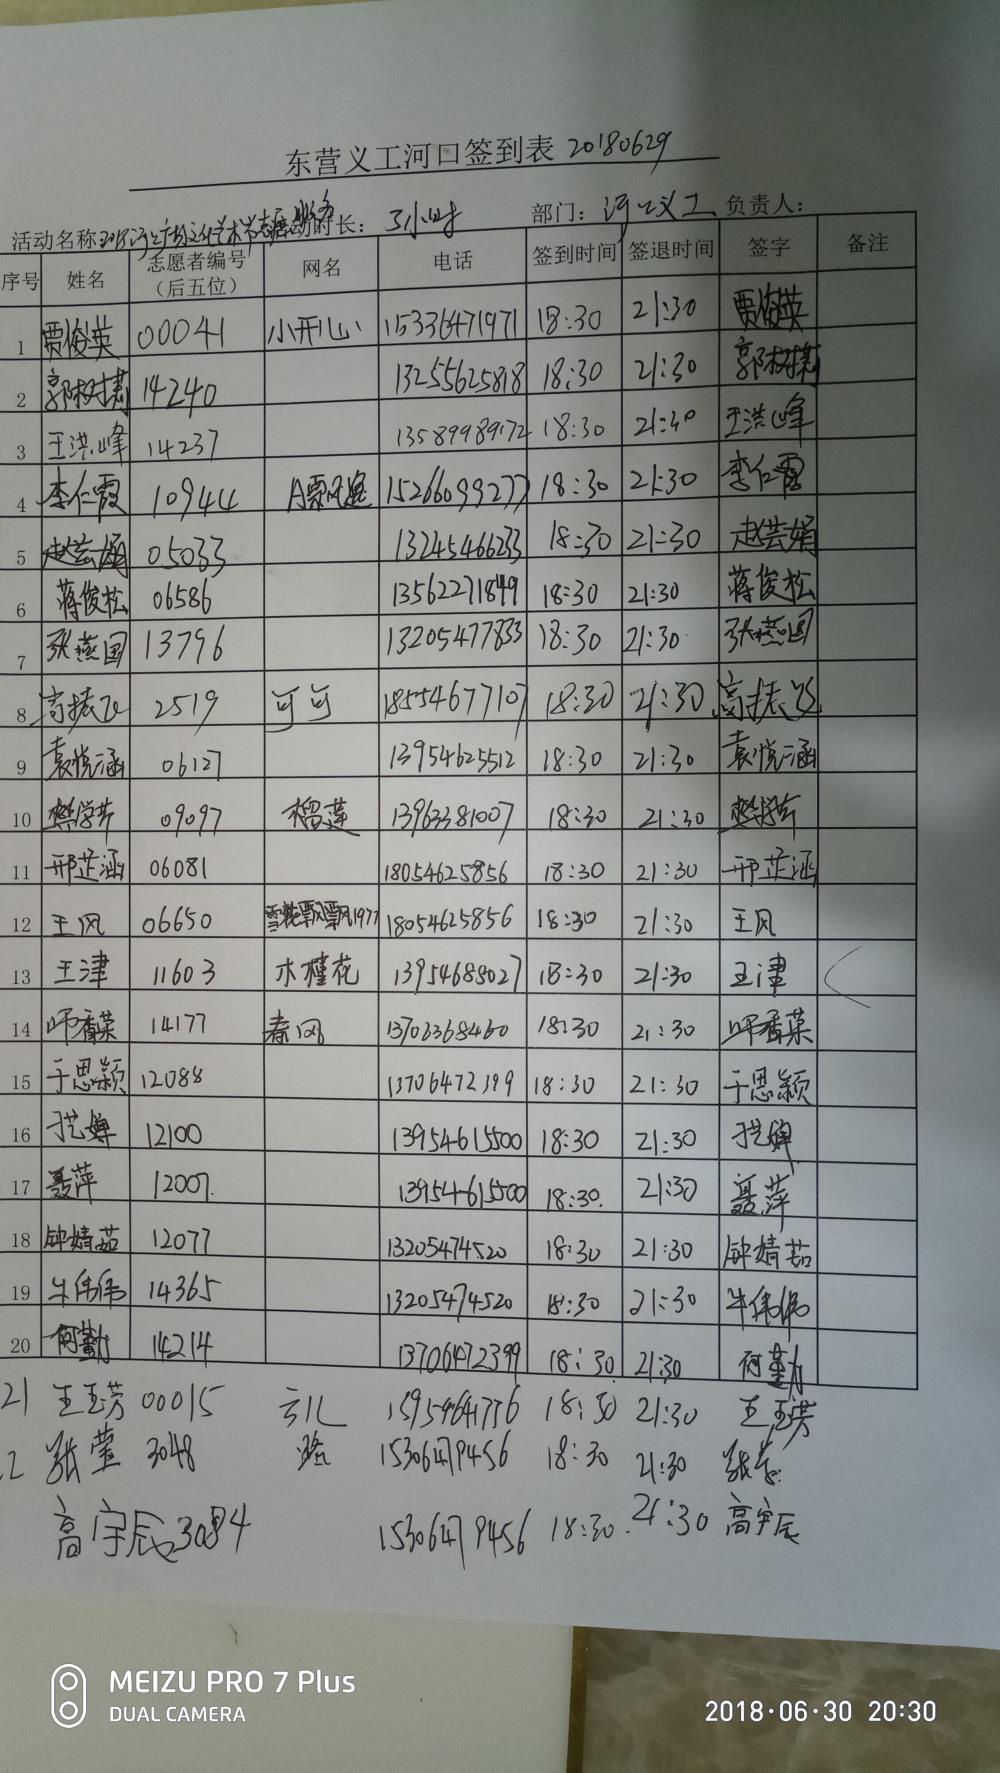 东营义工河口签到表 20180629
活动名称 2018河口广场文化艺术节志愿服务 活动时长： 3小时 部门：河口义工 负责人：
序号 姓名 志愿者编号（后五位） 网名 电话 签到时间 签退时间 签字 备注
1 贾俊英 00041 小开心 15336471971 18:30 21:30 贾俊英
2 郭树 14240 13255625818 18:30 21:30 郭树
3 王洪峰 14237 13589989172 18:30 21:30 王洪峰
4 李仁霞 10944 15266099277 18:30 21:30 李仁霞
5 赵芸娟 05033 13245466233 18:30 21:30 赵芸娟
6 蒋俊松 06586 13562271849 18:30 21:30 蒋俊松
7 张燕国 13796 13205477833 18:30 21:30 张燕国
8 高振飞 2519 可可 18554677107 18:30 21:30 高振飞
9 袁悦涵 06127 13954625512 18:30 21:30 袁悦涵
10 09097 榴莲 13963381007 18:30 21:30
11 邢芷涵 06081 18054625856 18:30 21:30 邢芷涵
12 王风 06650 雪花飘飘1977 18054625856 18:30 21:30 王风
13 王津 11603 木槿花 13954688027 18:30 21:30 王津
14 师香菜 14177 春风 13703368460 18:30 21:30 师香菜
15 于思颖 12088 13706472399 18:30 21:30 于思颖
16 12100 13954615500 18:30 21:30
17 聂萍 12007 13954615500 18:30 21:30 聂萍
18 钟婧茹 12077 13205474520 18:30 21:30 钟婧茹
19 牛伟伟 14365 13205474520 18:30 21:30 牛伟伟
20 何勤 14214 13706472399 18:30 21:30 何勤
21 王玉芳 00015 云儿 15954641776 18:30 21:30 王玉芳
2 张莹 3048 15306479456 18:30 21:30 张莹
高宇辰 3084 15306479456 18:30 21:30 高宇辰
MEIZU PRO 7 Plus
DUAL CAMERA
2018·06·30 20:30